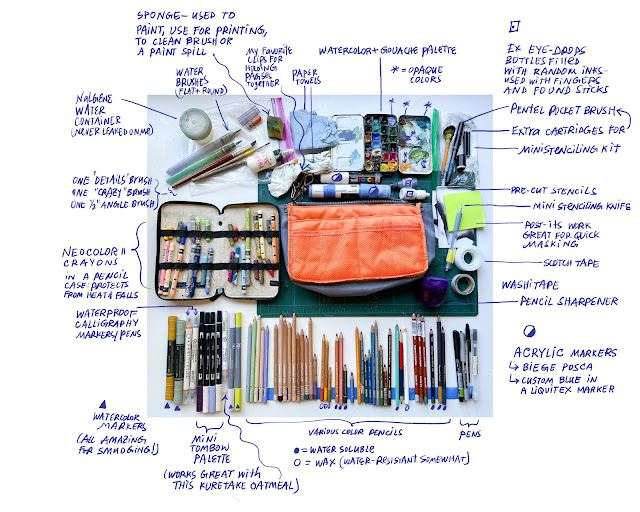 SPONGE - USED TO
PAINT, USE FOR PRINTING,
TO CLEAN BRUSH OR
A PAINT SPILL
WATER
BRUSHES
(FLAT + ROUND)
MY FAVORITE
CLIPS FOR
HOLDING
PAGES
TOGETHER
PAPER
TOWELS
WATERCOLOR + GOUACHE PALETTE
* = OPAQUE
COLORS
EX EYE-DROPS
BOTTLES FILLED
WITH RANDOM INKS -
USED WITH FINGERS
AND FOUND STICKS
NALGENE
WATER
CONTAINER
(NEVER LEAKED ON ME)
PENTEL POCKET BRUSH
EXTRA CARTRIDGES FOR
MINISTENCILING KIT
ONE "DETAILS" BRUSH
ONE "CRAZY" BRUSH
ONE ½" ANGLE BRUSH
PRE-CUT STENCILS
MINI STENCILING KNIFE
POST-ITS WORK
GREAT FOR QUICK
MASKING
SCOTCH TAPE
NEOCOLOR II
CRAYONS
IN A PENCIL
CASE: PROTECTS
FROM HEAT & FALLS
WASHI TAPE
PENCIL SHARPENER
WATERPROOF
CALLIGRAPHY
MARKERS/PENS
ACRYLIC MARKERS
↳ BIEGE POSCA
↳ CUSTOM BLUE IN
A LIQUITEX MARKER
WATERCOLOR
MARKERS
(ALL AMAZING
FOR SMUDGING!)
MINI
TOMBOW
PALETTE
(WORKS GREAT WITH
THIS KURETAKE OATMEAL)
VARIOUS COLOR PENCILS
● = WATER SOLUBLE
O = WAX (WATER-RESISTANT SOMEWHAT)
PENS